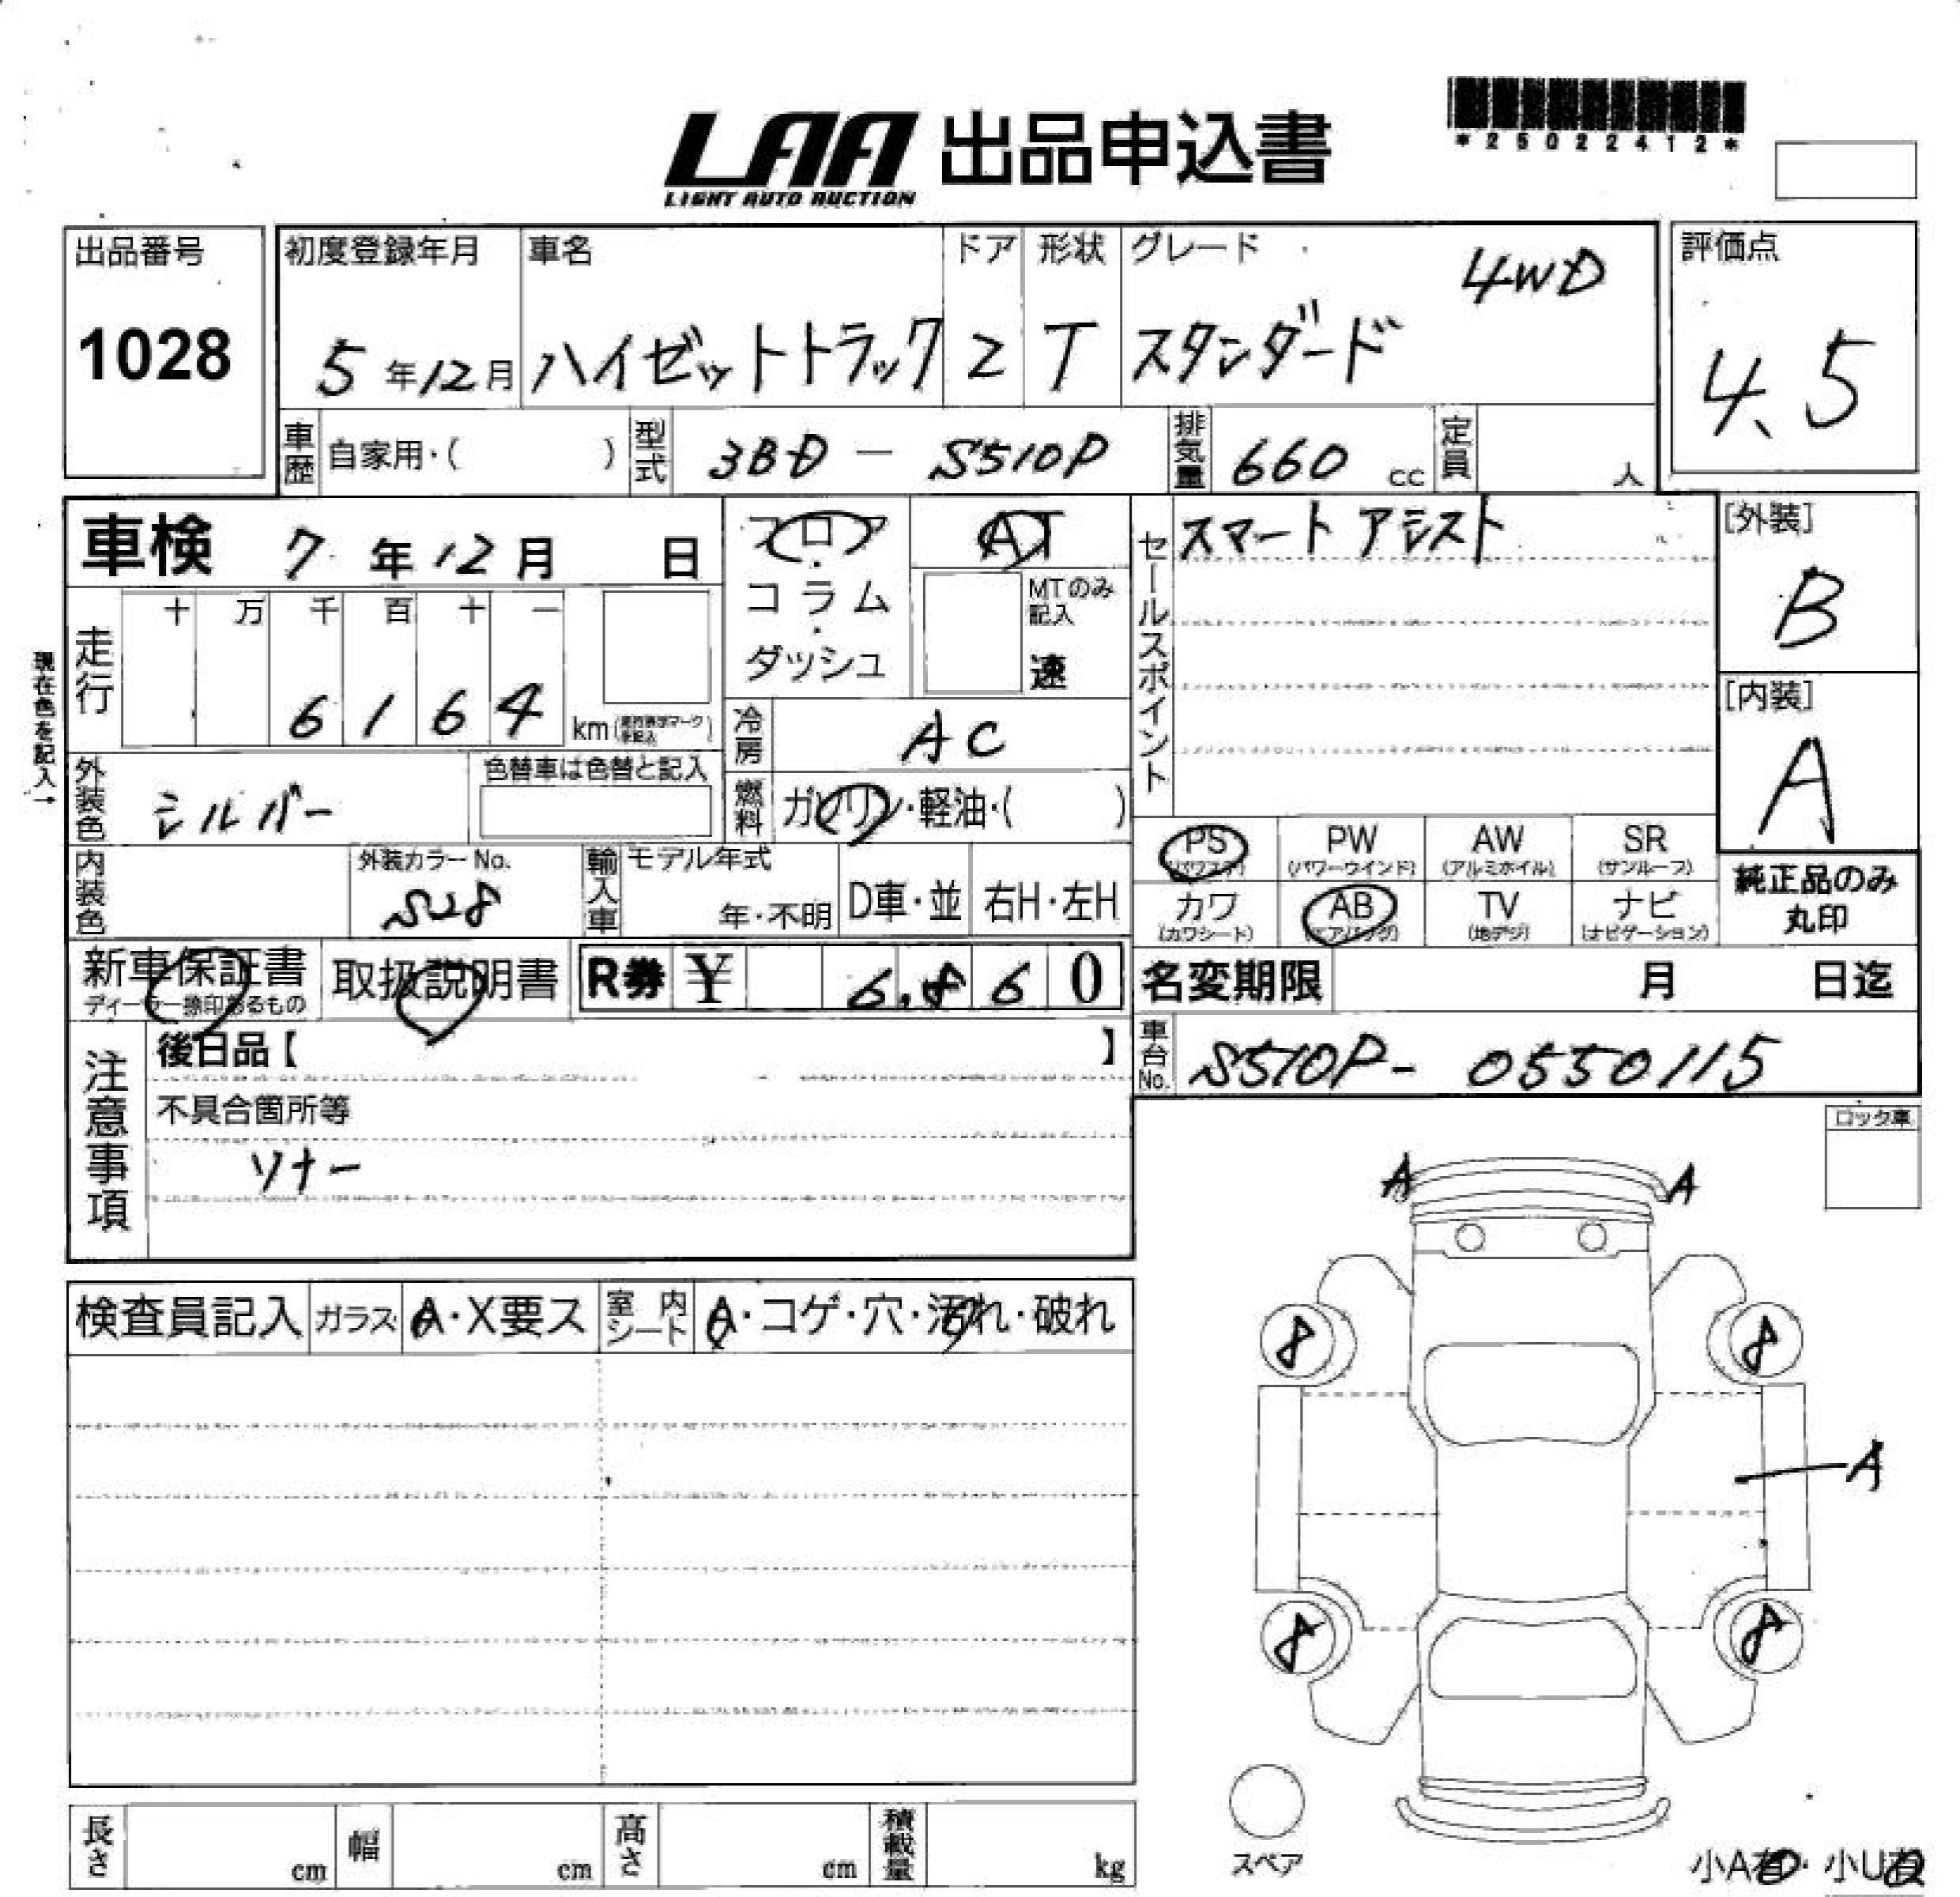 LAA 出品申込書
LIGHT AUTO AUCTION
*25022412*
出品番号
1028
初度登録年月
5年12月
車名
ハイゼットトラック
ドア
2
形状
T
グレード
4WD
スタンダード
評価点
4.5
車歴 自家用・( )
型式 3BD - S510P
排気量 660 cc
定員 人
車検 7年12月 日
フロア・コラム・ダッシュ
AT
MTのみ記入
速
セールスポイント
スマートアシスト
[外装]
B
[内装]
A
現在色を記入→
走行
十 万 千 百 十 一
6 1 6 4 km
冷房 AC
外装色 シルバー
色替車は色替と記入
燃料 ガソリン・軽油・( )
PS (パワステ)
PW (パワーウインド)
AW (アルミホイル)
SR (サンルーフ)
カワ (カワシート)
AB (エアバッグ)
TV (地デジ)
ナビ (ナビゲーション)
純正品のみ
丸印
内装色
外装カラーNo.
S28
輸入車
モデル年式
年・不明
D車・並
右H・左H
新車保証書
ディーラー捺印あるもの
取扱説明書
R券 ¥ 6,860
名変期限 月 日迄
車台No. S510P- 0550115
注意事項
後日品【 】
不具合箇所等
ソナー
ロック車
A A
検査員記入
ガラス A・X要ス
室内シート A・コゲ・穴・汚れ・破れ
8 8
A
8 8
スペア
長さ cm
幅 cm
高さ cm
積載量 kg
小A有・小U有